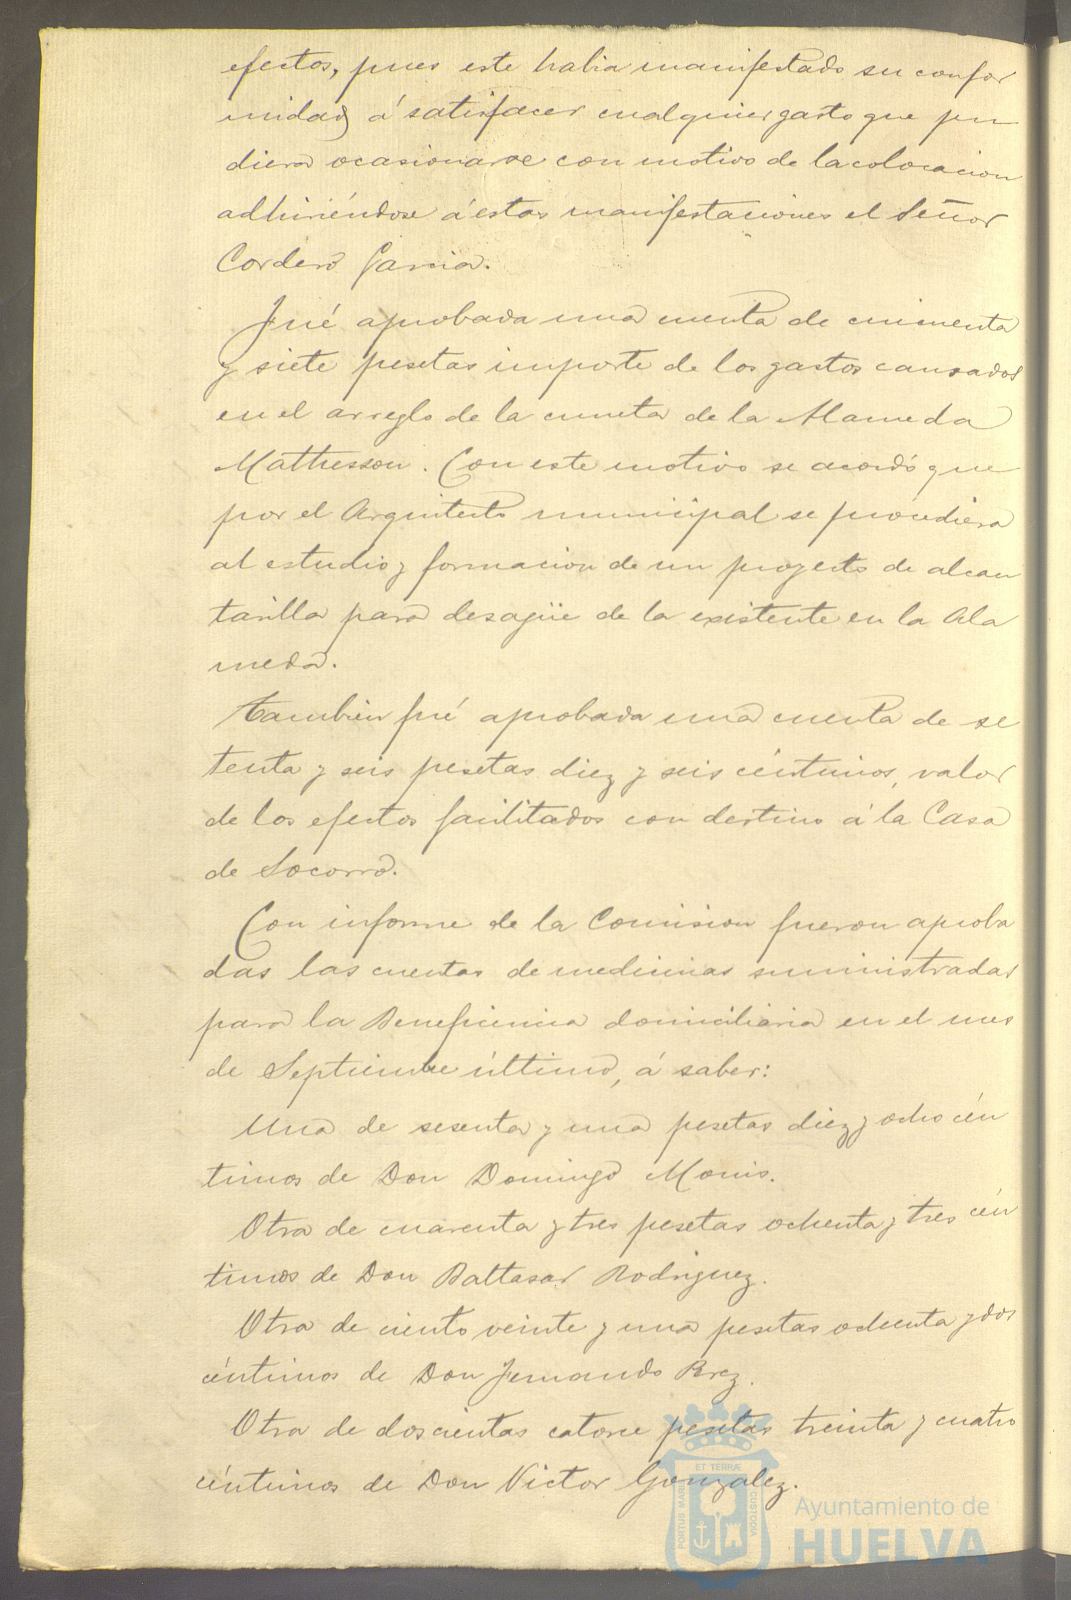 efectos, pues este habia manifestado su confor
midad á satisfacer cualquier gasto que pu
diera ocasionarse con motivo de la colocacion
adhiriéndose á estas manifestaciones el Señor
Cordero Garcia.
Fué aprobada una cuenta de cincuenta
y siete pesetas importe de los gastos causados
en el arreglo de la cuneta de la Alameda
Mathesson. Con este motivo se acordó que
por el Arquitecto municipal se procediera
al estudio y formacion de un proyecto de alcan
tarilla para desagüe de la existente en la Ala
meda.
Tambien fué aprobada una cuenta de se
tenta y seis pesetas diez y seis céntimos, valor
de los efectos facilitados con destino á la Casa
de Socorro.
Con informe de la Comision fueron aproba
das las cuentas de medicinas suministradas
para la Beneficencia domiciliaria en el mes
de Septiembre último, á saber:
Una de sesenta y una pesetas diez y ocho cén
timos de Don Domingo Monis.
Otra de cuarenta y tres pesetas ochenta y tres cén
timos de Don Baltasar Rodriguez.
Otra de ciento veinte y una pesetas ochenta y dos
céntimos de Don Fernando
Otra de doscientas catorce pesetas treinta y cuatro
céntimos de Don Victor Gonzalez.
PORTUS MARIS ET TERRÆ CUSTODIA
Ayuntamiento de
HUELVA